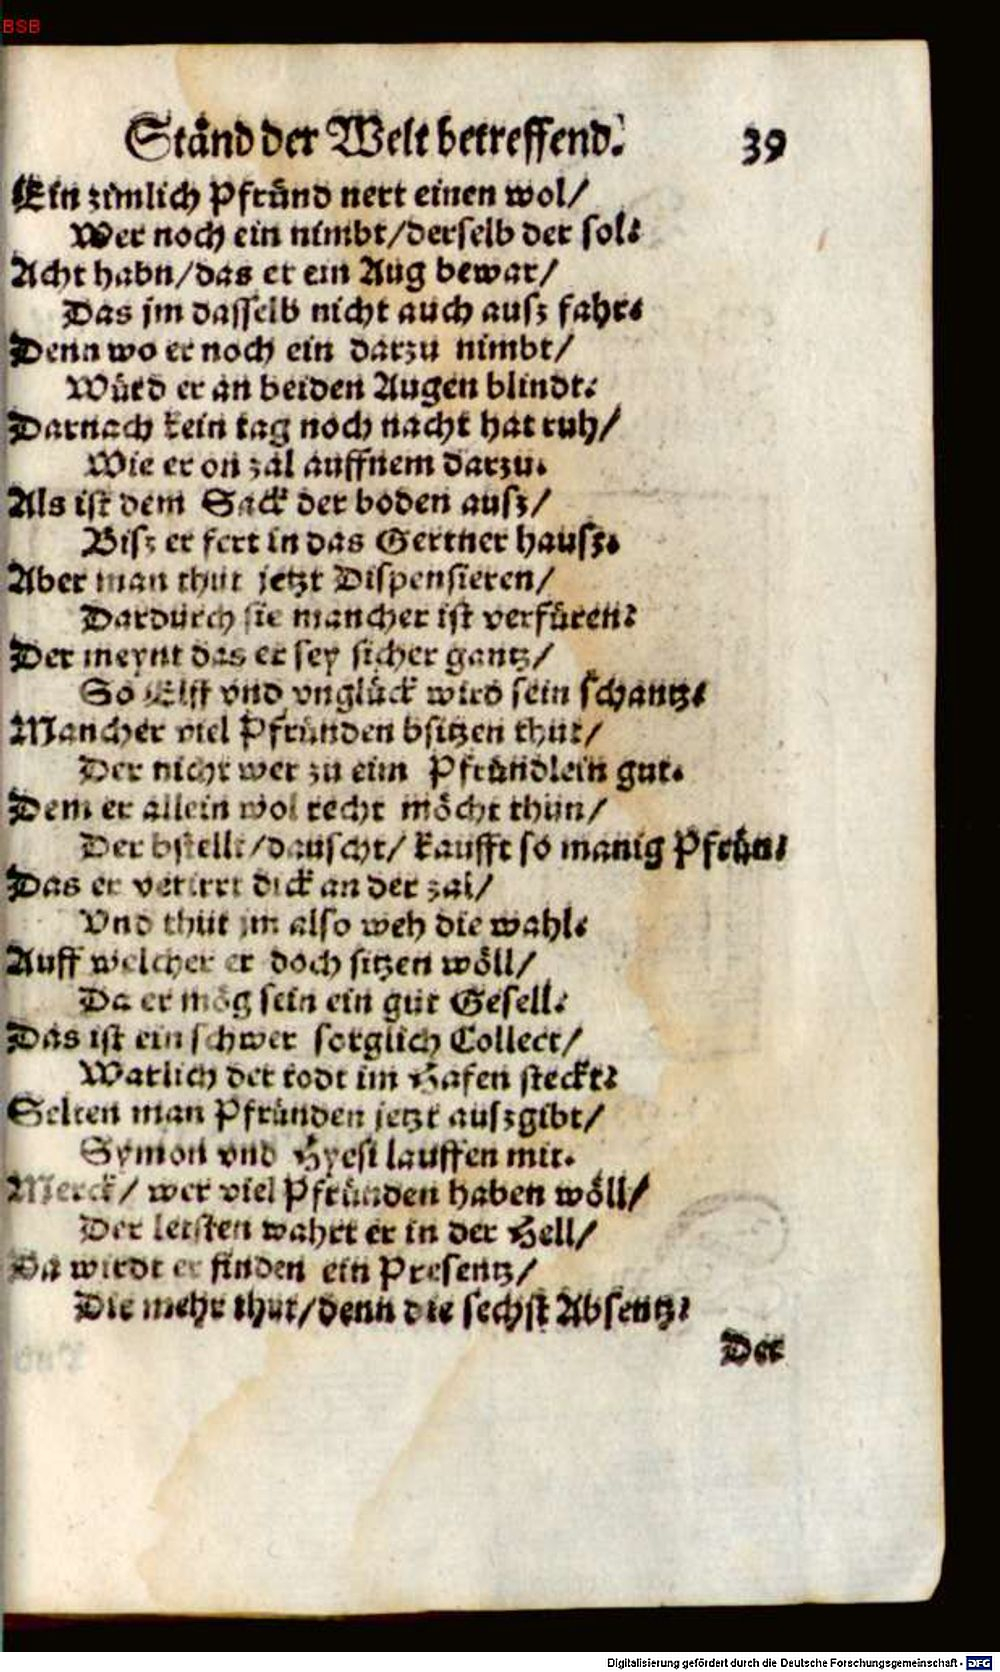 BSB
Ständ der Welt betreffend. 39
Ein zimlich Pfründ nert einen wol/
Wer noch ein nimbt/derselb der sol:
Acht habn/das er ein Aug bewar/
Das jm dasselb nicht auch ausz fahr:
Denn wo er noch ein darzu nimbt/
Würd er an beiden Augen blindt:
Darnach kein tag noch nacht hat ruh/
Wie er on zal auffnem darzu.
Als ist dem Sack der boden ausz/
Bisz er fert in das Gertner hausz.
Aber man thut jetzt Dispensieren/
Dardurch sie mancher ist verfüren:
Der meynt das er sey sicher gantz/
So Elff vnd vnglück wird sein schantz:
Mancher viel Pfründen bsitzen thut/
Der nicht wer zu eim Pfründlein gut.
Dem er allein wol recht möcht thun/
Der bstellt/dauscht/ kaufft so manig Pfrün:
Das er verirrt dick an der zal/
Vnd thut jm also weh die wahl:
Auff welcher er doch sitzen wöll/
Da er mög sein ein gut Gesell:
Das ist ein schwer sorglich Collect/
Warlich der todt im Hafen steckt:
Selten man Pfründen jetzt auszgibt/
Symon vnd Hyesi lauffen mit.
Merck/ wer viel Pfründen haben wöll/
Der letsten wahrt er in der Hell/
Da wirdt er finden ein Presentz/
Die mehr thut/denn die sechst Absentz:
Der
Digitalisierung gefördert durch die Deutsche Forschungsgemeinschaft - DFG